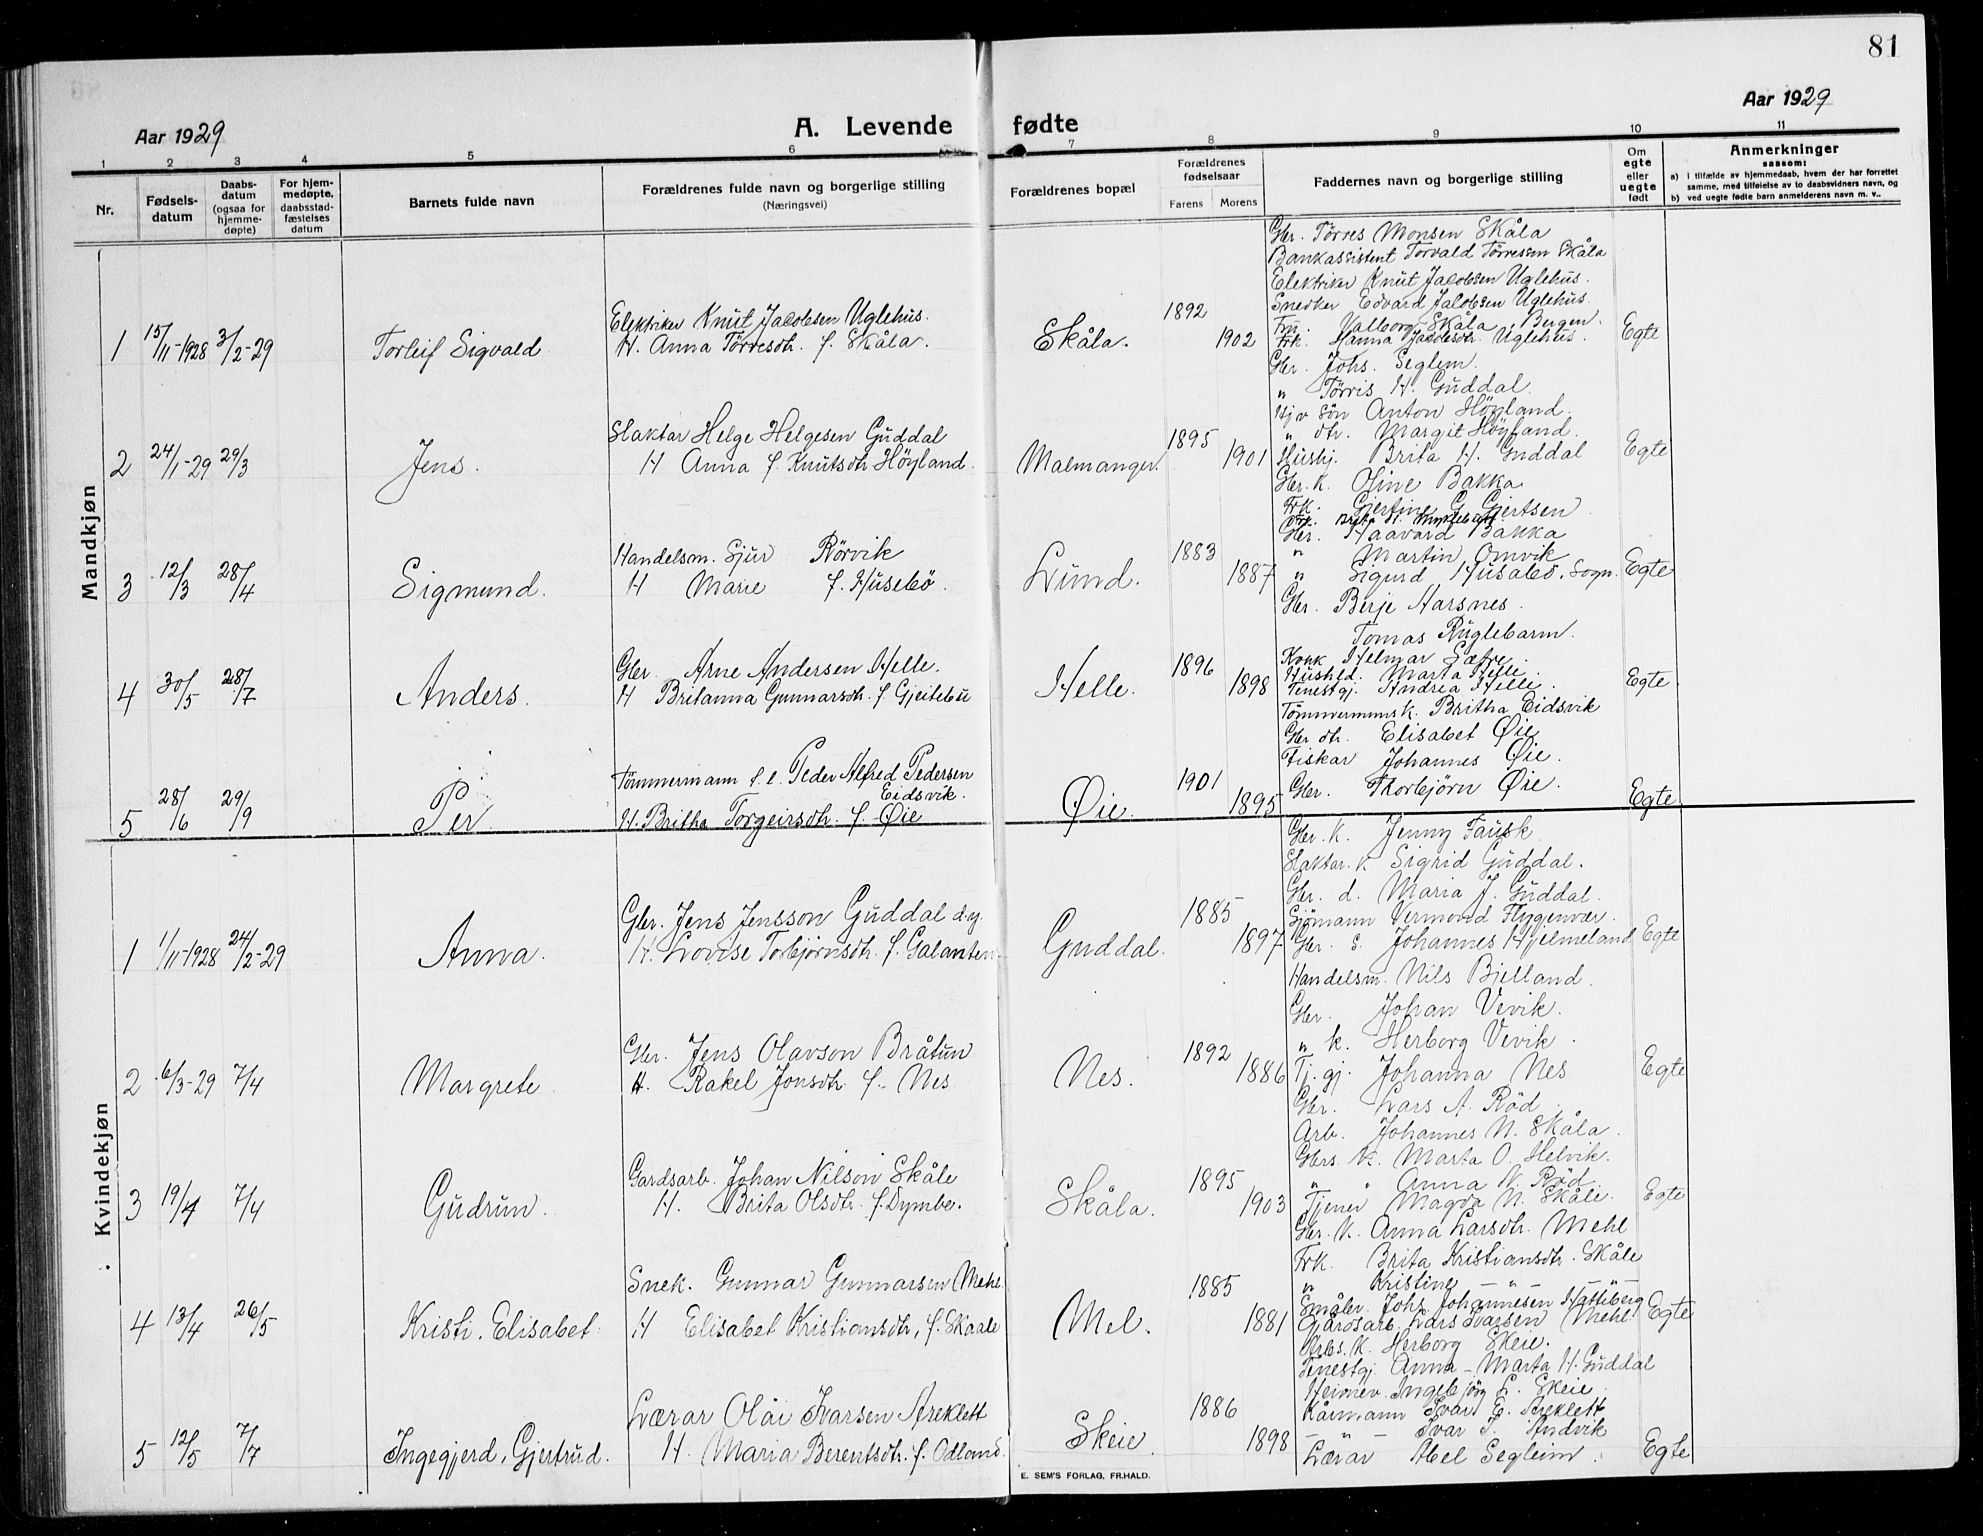 81
Aar 1929
A. Levende fødte
Aar 1929
1 2 3 4 5 6 7 8 9 10 11
Nr.
Fødsels-
datum
Daabs-
datum
(ogsaa for
hjemme-
døpte)
For hjem-
medøpte,
daabsstad-
fæstelses
datum
Barnets fulde navn
Forældrenes fulde navn og borgerlige stilling
(Næringsvei)
Forældrenes bopæl
Forældrenes
fødselsaar
Farens Morens
Faddernes navn og borgerlige stilling
Om
egte
eller
uegte
født
Anmerkninger
saasom:
a) i tilfælde av hjemmedaab, hvem der har forrettet
samme, med tilføielse av to daabsvidners navn, og
b) ved uegte fødte barn anmelderens navn m. v..
Mandkjøn
1 15/11-1928 3/2-29 Torleif Sigvald
Elektriker Knut Jacobsen Uglehus.
H. Anna Tørresdtr. f. Skåla.
Skåla. 1892 1902
Gbr. Tørres Monsen Skåla
Bankassistent Torvald Tørresen Skåla
Elektriker Knut Jacobsen Uglehus.
Snedker Edvard Jacobsen Uglehus.
Fru. Valborg Skåla Bergen.
Frk. Hanna Jacobsdr. Uglehus.
Egte
2 24/1-29 29/3 Jens.
Slaktar Helge Helgesen Guddal
H Anna f. Knutsdtr Höyland.
Malmanger. 1895 1901
Gbr. Johs. Seglem.
" Tørris H. Guddal.
Gjv søn Anton Höyland.
" dtr. Margit Höyland.
Hushj. Brita H. Guddal
Gbr. K. Oline Bakka
Frk. Gjertine G. Gjertsen
Egte
3 12/3 28/4 Sigmund.
Handelsm. Sjur Rörvik
H Marie f. Husebö.
Lund. 1883 1887
Gbr. Haavard Bakka
" Martin Omvik
" Sigurd Husabø. Sogn.
Egte
4 30/5 28/7 Anders.
Gbr. Arne Andersen Helle.
H Britanna Gunnarsdtr. f. Gjeitebu
Helle. 1896 1898
Gbr. Berje Aarsnes.
Tomas Ruglebarm.
Kokk Helmar Sætre.
Hushld. Marta Helle
Tenestgj. Andrea Helle.
Egte
5 28/6 29/9 Per
Tömmermann f. e. Peder Alfred Pedersen
Eidsvik.
H. Britha Torgeirsdtr. f. Øie
Øie. 1901 1895
Tömmermans k. Britha Eidsvik
Gbr dtr. Elisabet Øie
Fiskar Johannes Øie.
Gbr. Thorbjörn Øie.
Egte
Kvindekjøn
1 1/11-1928 24/2-29 Anna.
Gbr. Jens Jensson Guddal d.y.
H. Lovise Torbjörnsdtr. f. Galanten.
Guddal. 1885 1897
Gbr. K. Jenny Fausk
Slaktar. k. Sigrid Guddal.
Gbr. d. Maria J. Guddal.
Sjömann Vermond Flygenvær.
Gbr. s. Johannes Hjelmeland
Handelsm. Nils Bjelland.
Egte
2 6/3-29 7/4 Margrete
Gbr. Jens Olavson Bråtun
H. Rakel Jonsdtr. f. Nes
Nes. 1892 1886
Gbr. Johan Vevik.
" k. Herborg Vevik.
Tj. gj. Johanna Nes
Gbr. Lars A. Röd.
Egte
3 19/4 7/4 Gudrun.
Gardsarb. Johan Nilson Skåle
H. Brita Olsdtr. f. Dymbe.
Skåla. 1895 1903
Arb. Johannes N. Skåla.
Gbrs. K. Marta O. Helvik.
" " Anna N. Röd.
Tjener Magda N. Skåle.
Egte
4 13/4 26/5 Kristi. Elisabet
Snek. Gunnar Gunnarsen Mehl
H Elisabet Kristiansdtr. f. Skaale
Mel. 1885 1881
Gbr. K. Anna Larsdtr. Mehl
Frk. Brita Kristiansdtr. Skåle
" Kristine — " —
Småbr. Johs. Johannesen Hattiberg
Gjårdsarb. Lars Ivarsen Mehl
Egte
5 12/5 7/7 Ingegjerd, Gjertrud.
Lærar Olai Ivarsen Areklett
H. Maria Berentsdtr. f. Odland.
Skeie. 1886 1898
Arbs. K. Herborg Skeie.
Tenestgj. Anna-Marta H. Guddal
Heimev. Ingebjörg L. Skeie.
Kårmann Ivar E. Areklett
— " — Ivar I. Andvik
Lærar Abel Segleim.
Egte
E. SEM'S FORLAG, FR.HALD.